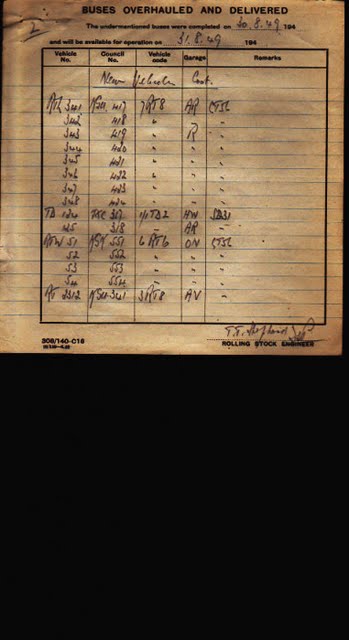 2
BUSES OVERHAULED AND DELIVERED
The undermentioned buses were completed on 30.8.49 194
and will be available for operation on 31.8.49 194
Vehicle No. Council No. Vehicle code Garage Remarks
New Vehicles Cont.
RTL 341 KGU 417 7RT8 AR CT56
342 418 " "
343 419 " R "
344 420 " " "
345 421 " " "
346 422 " " "
347 423 " " "
348 424 " " "
TD 124 317 1/1TD2 HW SB31
125 318 " AR "
RTW 51 KGK 551 6RT6 ON CT56
52 552 " " "
53 553 " " "
54 554 " " "
RT 2312 KGU 341 3RT8 AV "
308/140-C16
ROLLING STOCK ENGINEER